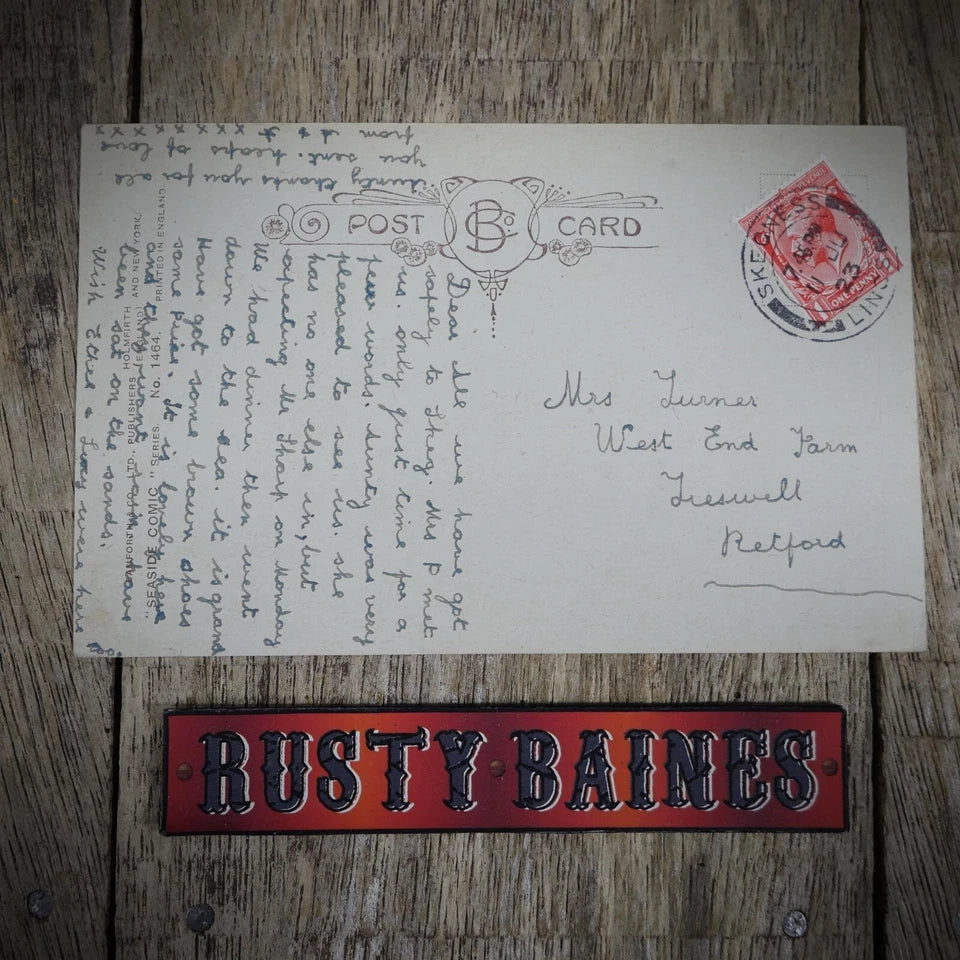 POST CARD
B Co
SKEGNESS
23
LINCS
ONE PENNY
Mrs Turner
West End Farm
Treswell
Retford
Dear All we have got
safely to Skeg. Mrs P met
us. only just time for a
few words. Aunty was very
pleased to see us. she
has no one else in, but
expecting Mr Sharp on Monday
We had dinner then went
down to the sea. it is grand
Have got some brown shoes
same price. it is lovely here
and
been sat on the sands.
Wish Ethel & Lucy were here
Aunty thanks you for all
you sent. heaps of love
from
x x x x x x x x
BAMFORTH & CO., LTD., PUBLISHERS, HOLMFIRTH AND NEW YORK.
"SEASIDE COMIC" SERIES. No. 1464. PRINTED IN ENGLAND
RUSTY BAINES